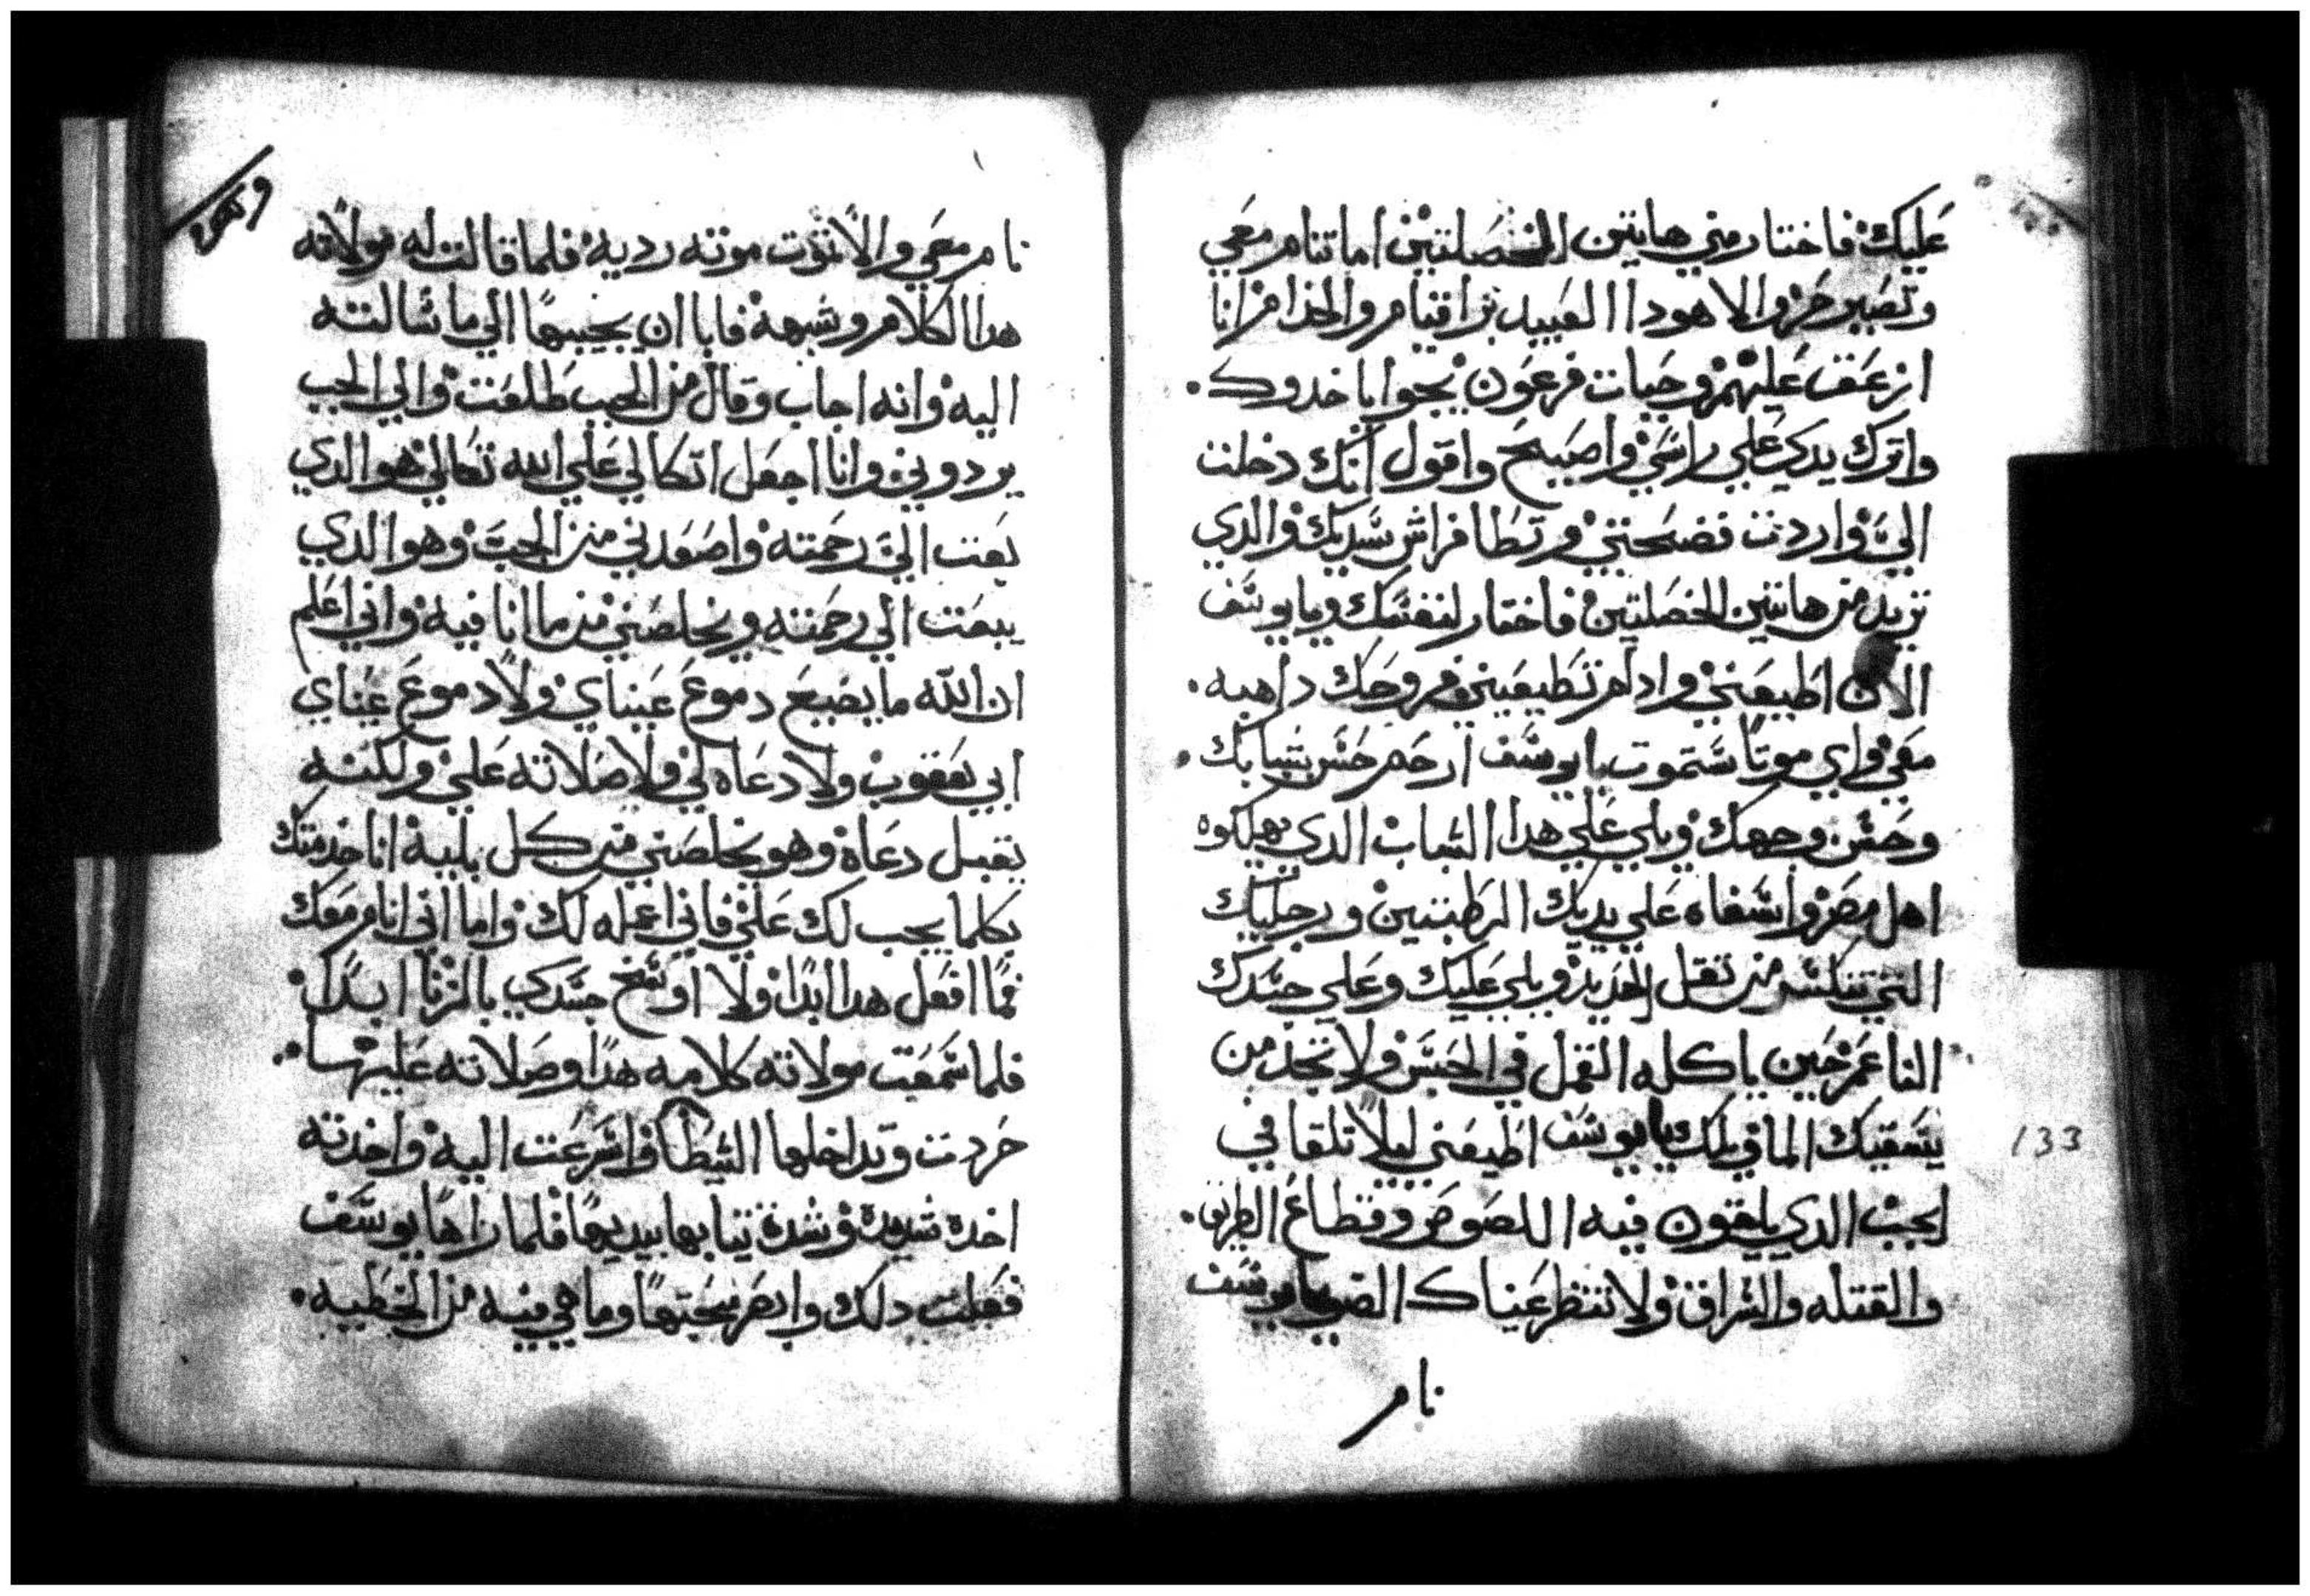 عليك فاختار مني هاتين الخصلتين اما تنام معي
وتصير حر والا هودا العبيد برا قيام والخدام انا
ازعق عليهم وحيات فرعون يجوا ياخدوك
واترك يدي علي راسي واصيح واقول انك دخلت
الي واردت فضحتني وتطا فراش سيدك والدي
تريد من هاتين الخصلتين فاختار لنفسك ويا يوسف
الان اطيعني وادا لم تطيعني فروحك داهبه
معي واي موتا ستموت يا يوسف ارحم حسن شبابك
وحسن وجهك ويلي علي هدا الشباب الدي يهلكوه
اهل مصر واسفاه علي يديك الرطبتين ورجليك
التي تنكسر من تقل الحديد ويلي عليك وعلي جسدك
الناعم حين ياكله القمل في الحبس ولا تجد من
يسقيك الما في يا يوسف اطيعني ليلا تلقا في
الجب الدي يلقون فيه اللصوص وقطاع الطريق
والقتله والسراق ولا تنظر عيناك الضو يا يوسف
نام
133
نام معي والا تموت موته رديه فلما قالت له مولاته
هدا الكلام وشبهه فابا ان يجيبها الي ما سالته
اليه وانه اجاب وقال من الجب طلعت والي الجب
يردوني وانا اجعل اتكالي علي الله تعالي هو الدي
بعت الي رحمته واصعدني من الجب وهو الدي
يبعت الي رحمته ويخلصني من ما انا فيه واني اعلم
ان الله ما يضيع دموع عيناي ولا دموع عيناي
ابي يعقوب ولا دعاه لي ولا صلاته علي ولكنه
يقبل دعاه وهو يخلصني من كل بليه انا خدمتك
بكلما يجب لك علي فاني اعمله لك واما اني انام معك
فما افعل هدا ابدا ولا اوسخ جسدي بالزنا ابدا
فلما سمعت مولاته كلامه هدا وصلاته عليها
حردت وتداخلها الشيطان فاسرعت اليه واخدته
اخده شديده وشدة تيابها بيديها فلما راها يوسف
فعلت دلك وابصر سحتها وما هي فيه من الخطيه